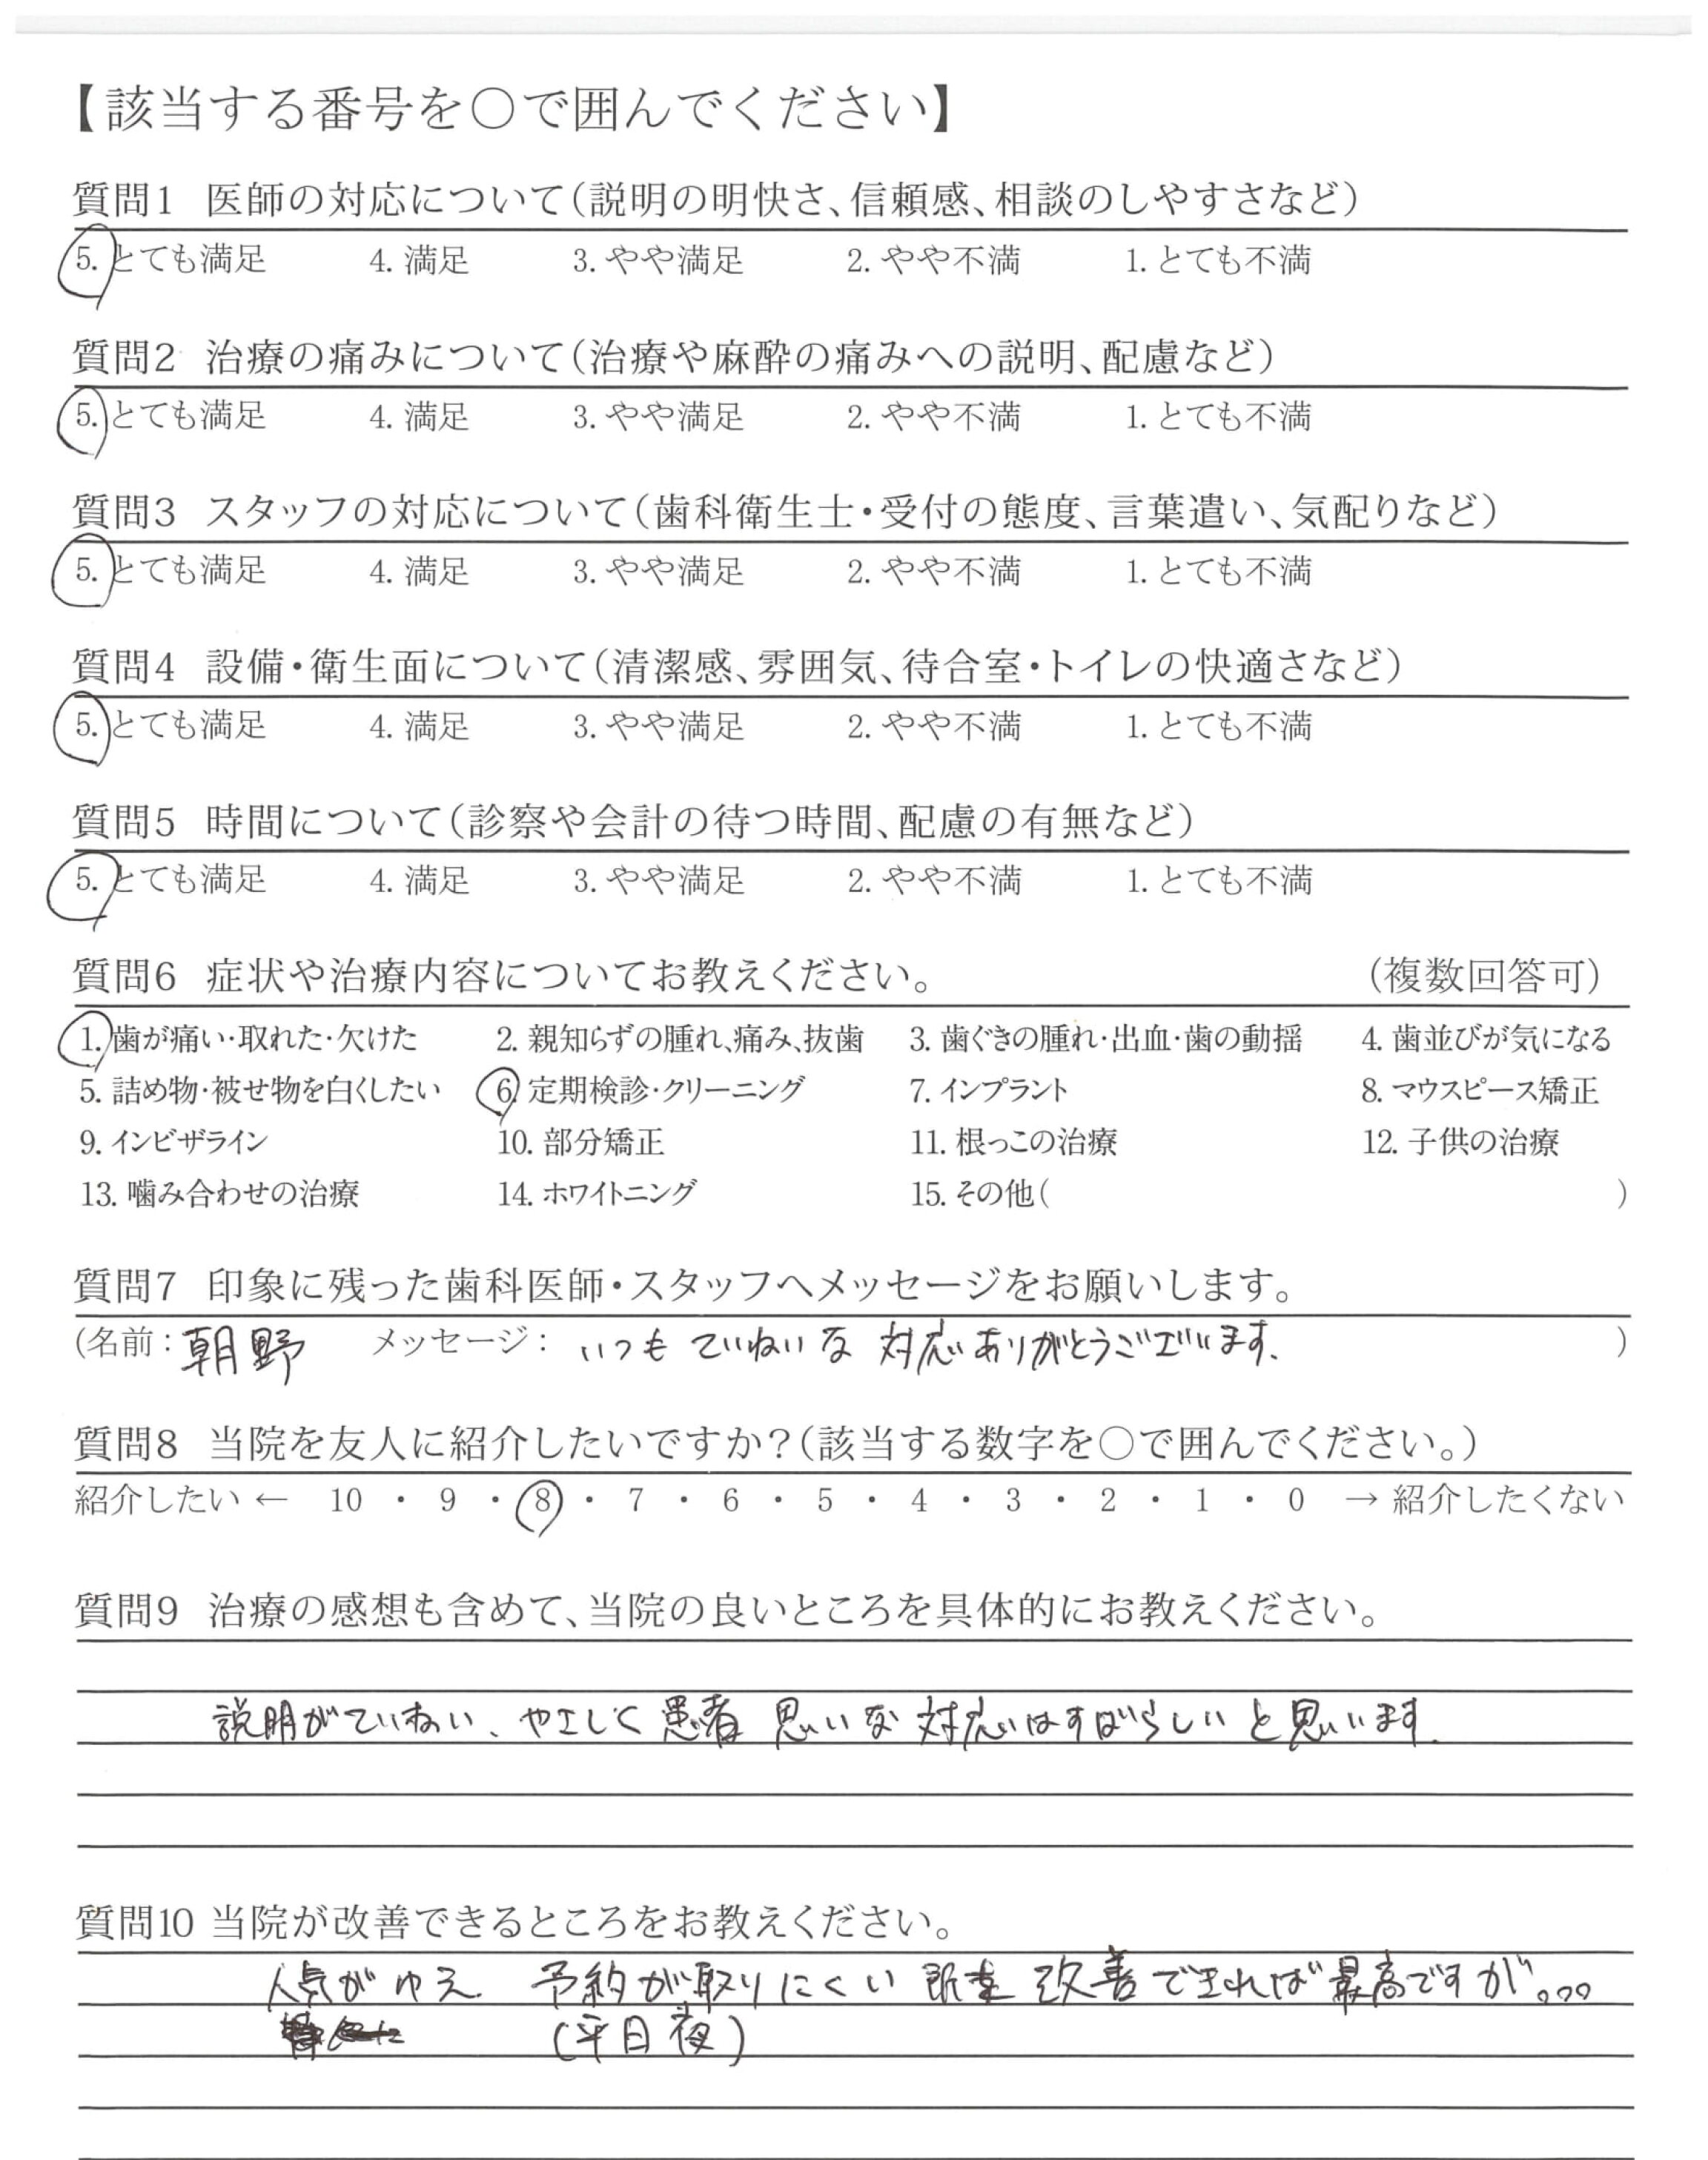 【該当する番号を〇で囲んでください】
質問1 医師の対応について(説明の明快さ、信頼感、相談のしやすさなど)
5. とても満足 4. 満足 3. やや満足 2. やや不満 1. とても不満
質問2 治療の痛みについて(治療や麻酔の痛みへの説明、配慮など)
5. とても満足 4. 満足 3. やや満足 2. やや不満 1. とても不満
質問3 スタッフの対応について(歯科衛生士・受付の態度、言葉遣い、気配りなど)
5. とても満足 4. 満足 3. やや満足 2. やや不満 1. とても不満
質問4 設備・衛生面について(清潔感、雰囲気、待合室・トイレの快適さなど)
5. とても満足 4. 満足 3. やや満足 2. やや不満 1. とても不満
質問5 時間について(診察や会計の待つ時間、配慮の有無など)
5. とても満足 4. 満足 3. やや満足 2. やや不満 1. とても不満
質問6 症状や治療内容についてお教えください。 (複数回答可)
1. 歯が痛い・取れた・欠けた 2. 親知らずの腫れ、痛み、抜歯 3. 歯ぐきの腫れ・出血・歯の動揺 4. 歯並びが気になる
5. 詰め物・被せ物を白くしたい 6. 定期検診・クリーニング 7. インプラント 8. マウスピース矯正
9. インビザライン 10. 部分矯正 11. 根っこの治療 12. 子供の治療
13. 噛み合わせの治療 14. ホワイトニング 15. その他( )
質問7 印象に残った歯科医師・スタッフへメッセージをお願いします。
(名前:朝野 メッセージ: いつもていねいな対応ありがとうございます. )
質問8 当院を友人に紹介したいですか?(該当する数字を〇で囲んでください。)
紹介したい ← 10 ・ 9 ・ 8 ・ 7 ・ 6 ・ 5 ・ 4 ・ 3 ・ 2 ・ 1 ・ 0 → 紹介したくない
質問9 治療の感想も含めて、当院の良いところを具体的にお教えください。
説明がていねい、やさしく患者思いな対応はすばらしいと思います.
質問10 当院が改善できるところをお教えください。
人気がゆえ. 予約が取りにくい 改善できれば最高ですが。。。
(平日夜)